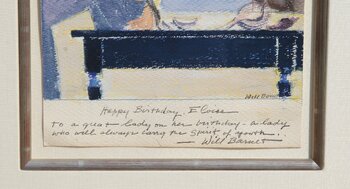 Will Barnet
Happy Birthday, Eloise
To a great lady on her birthday - a lady
who will always carry the spirit of youth...
— Will Barnet